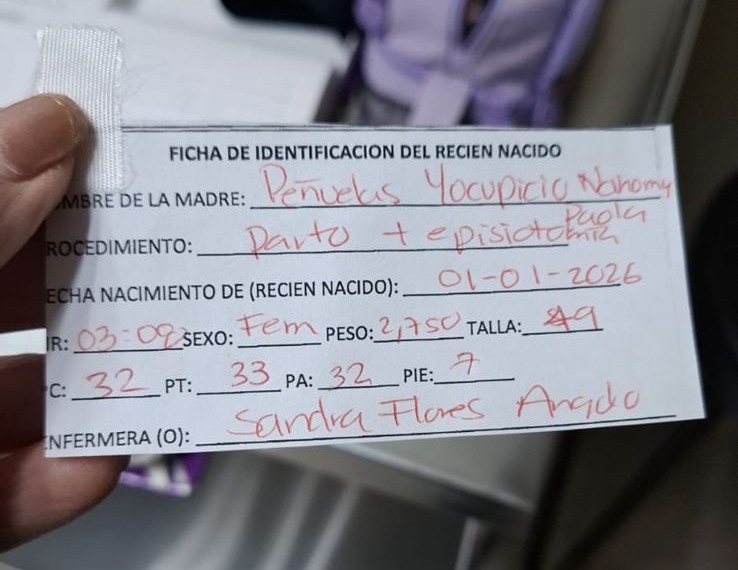 FICHA DE IDENTIFICACION DEL RECIEN NACIDO
MBRE DE LA MADRE: Peñuelas Yocupicio Nahomy
Paola
ROCEDIMIENTO: Parto + episiotomia
ECHA NACIMIENTO DE (RECIEN NACIDO): 01-01-2026
R: 03:09 SEXO: Fem PESO: 2,750 TALLA: 49
C: 32 PT: 33 PA: 32 PIE: 7
NFERMERA (O): Sandra Flores